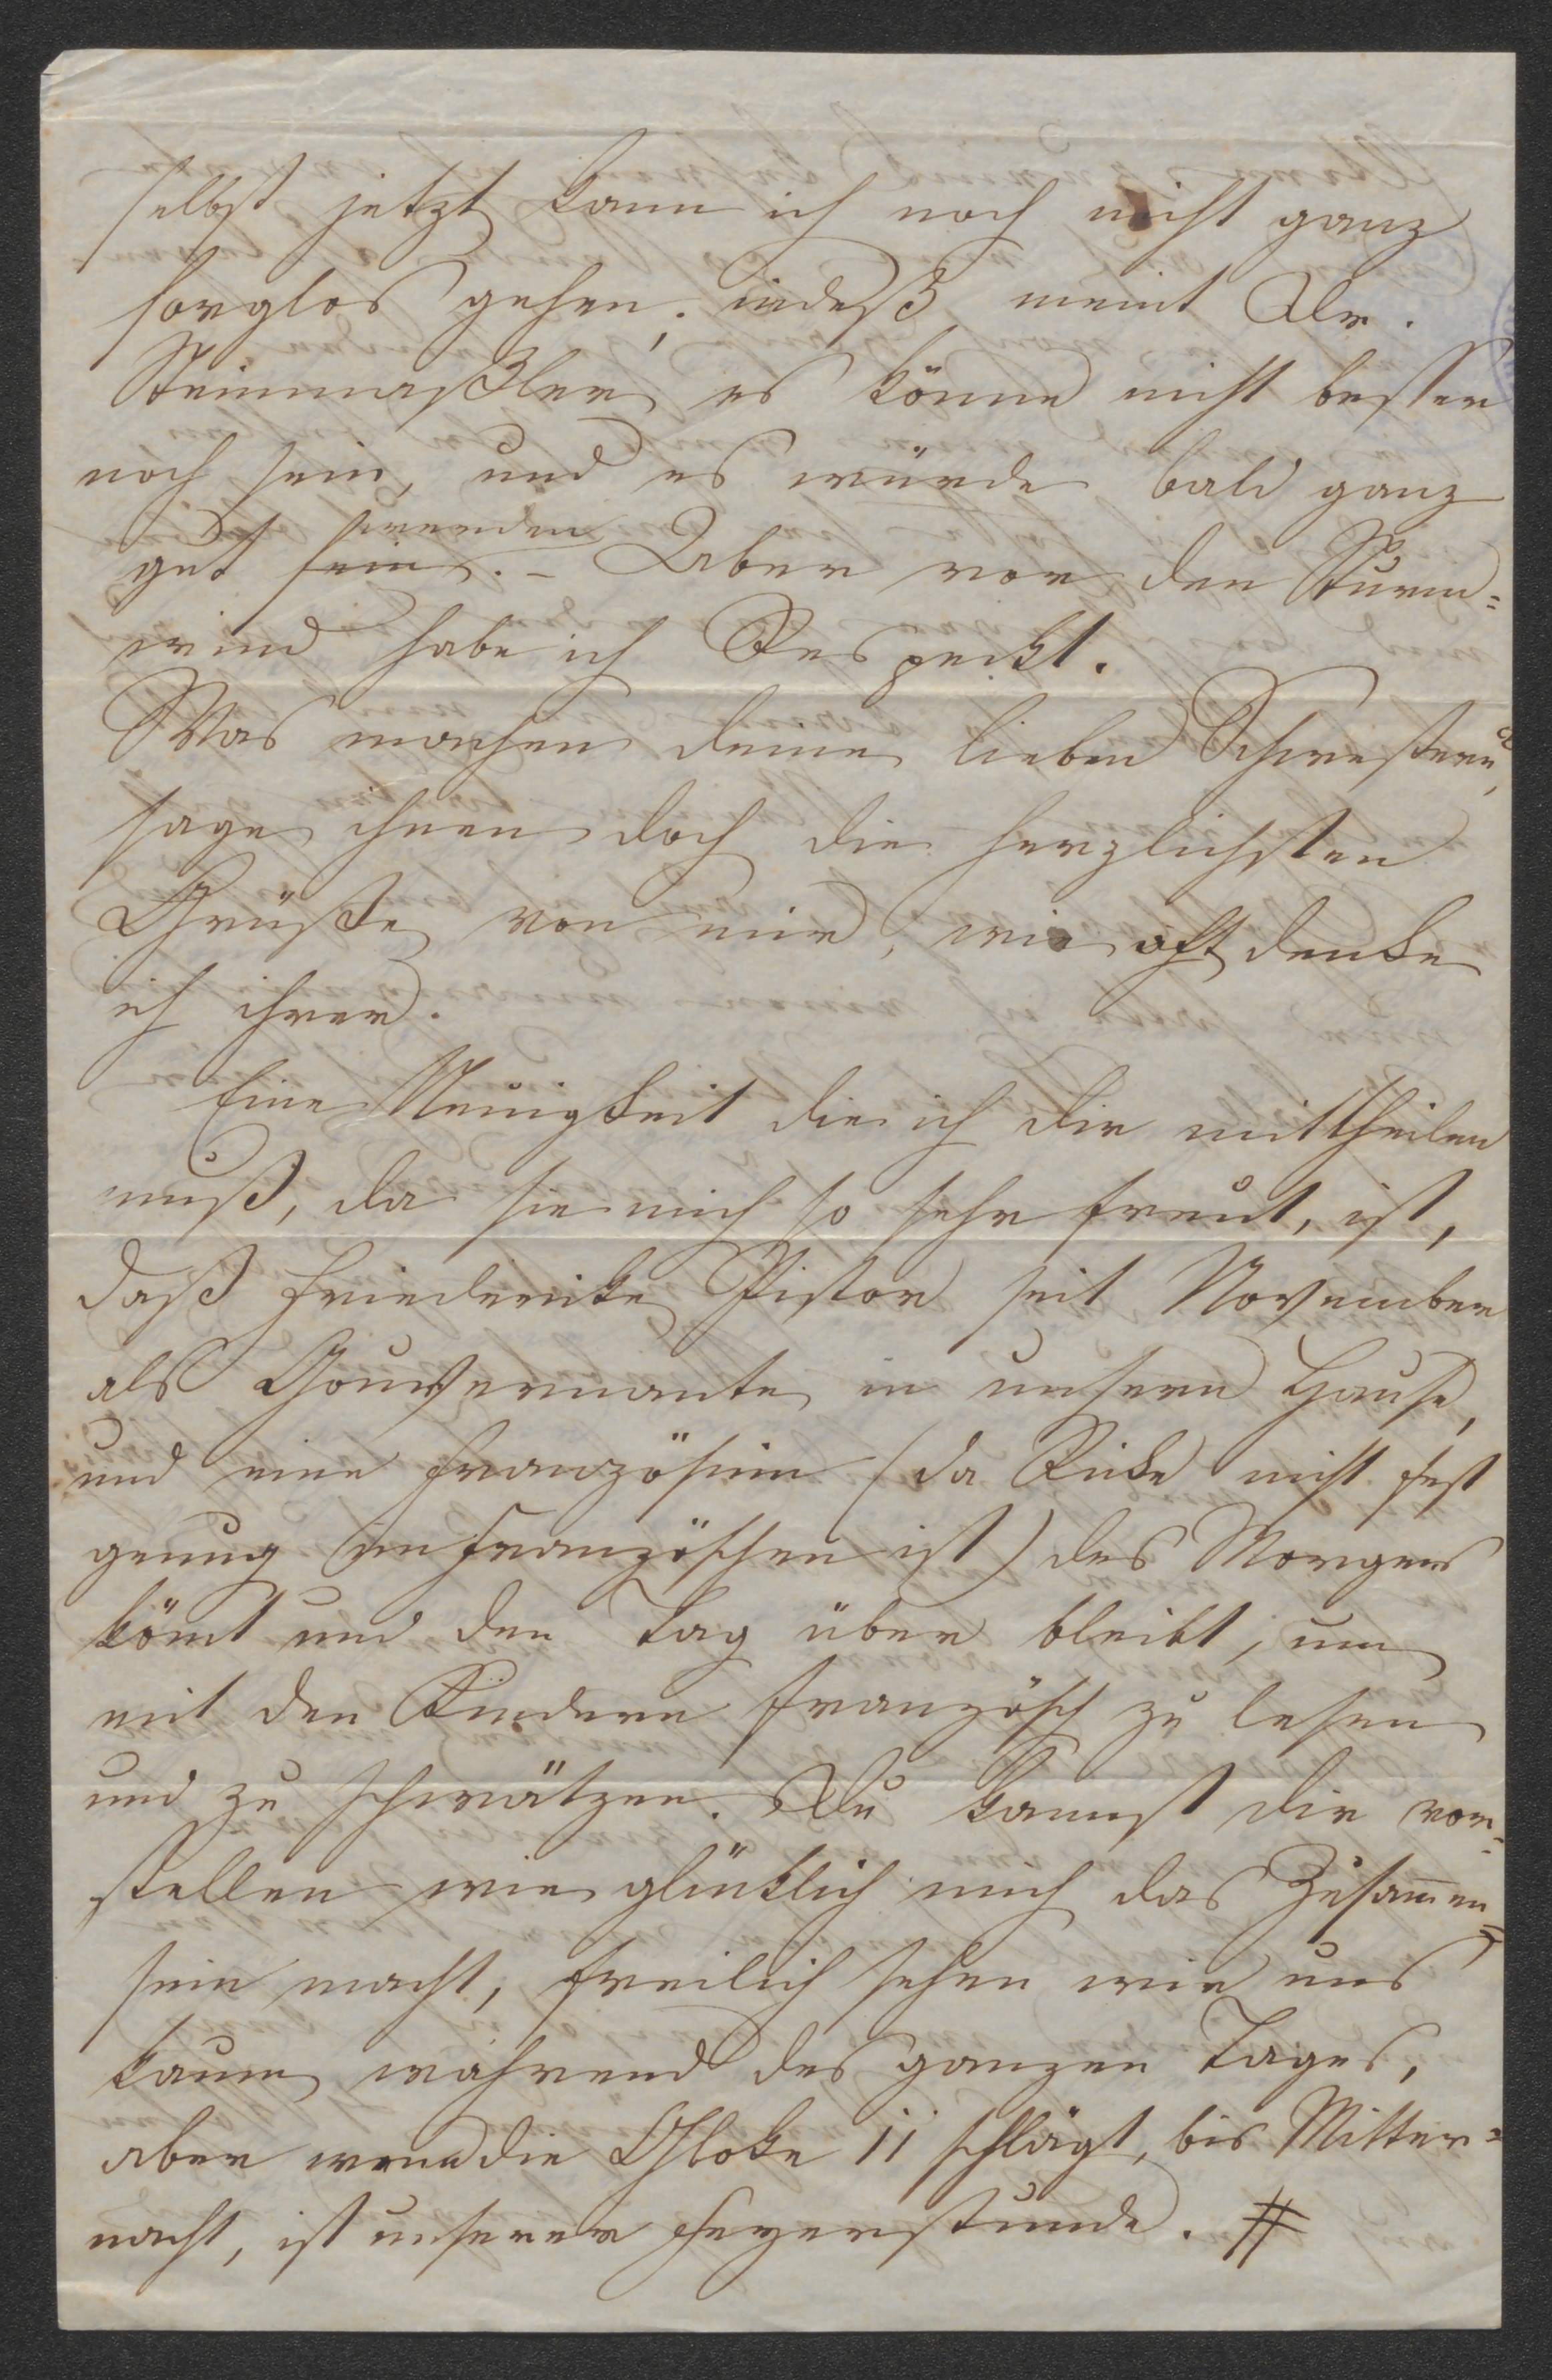 selbst jetzt kann ich noch nicht ganz
sorglos gehen, indeß meint Dr.
Steinmaßler es könne nicht besser
noch sein, und es würde bald ganz
werden
gut sein. – Aber vor den Sturm=
wind habe ich Respeckt.
Was machen deine lieben Schwestern,
sage ihnen doch die herzlichsten
Grüße von mir, wie oft denke
ich ihrer.
Eine Neuigkeit die ich dir mittheilen
muß, da sie mich so sehr freut, ist,
daß Friedericke Pistor seit November
als Gouvernante in unsern Hause,
und eine Französinn (da Ricke nicht fest
genung im Französchen ist) des Morgens
kömt und den Tag über bleibt, um
mit den Kindern Französch zu lesen
und zu schwätzen. Du kannst dir vor=
stellen wie glücklich mich das Zusam̄en=
sein macht, freilich sehen wir uns
kaum während des ganzen Tages,
aber wenn die Gloke 11 schlägt, bis Mitter=
nacht, ist unserer Feyerstunde. #